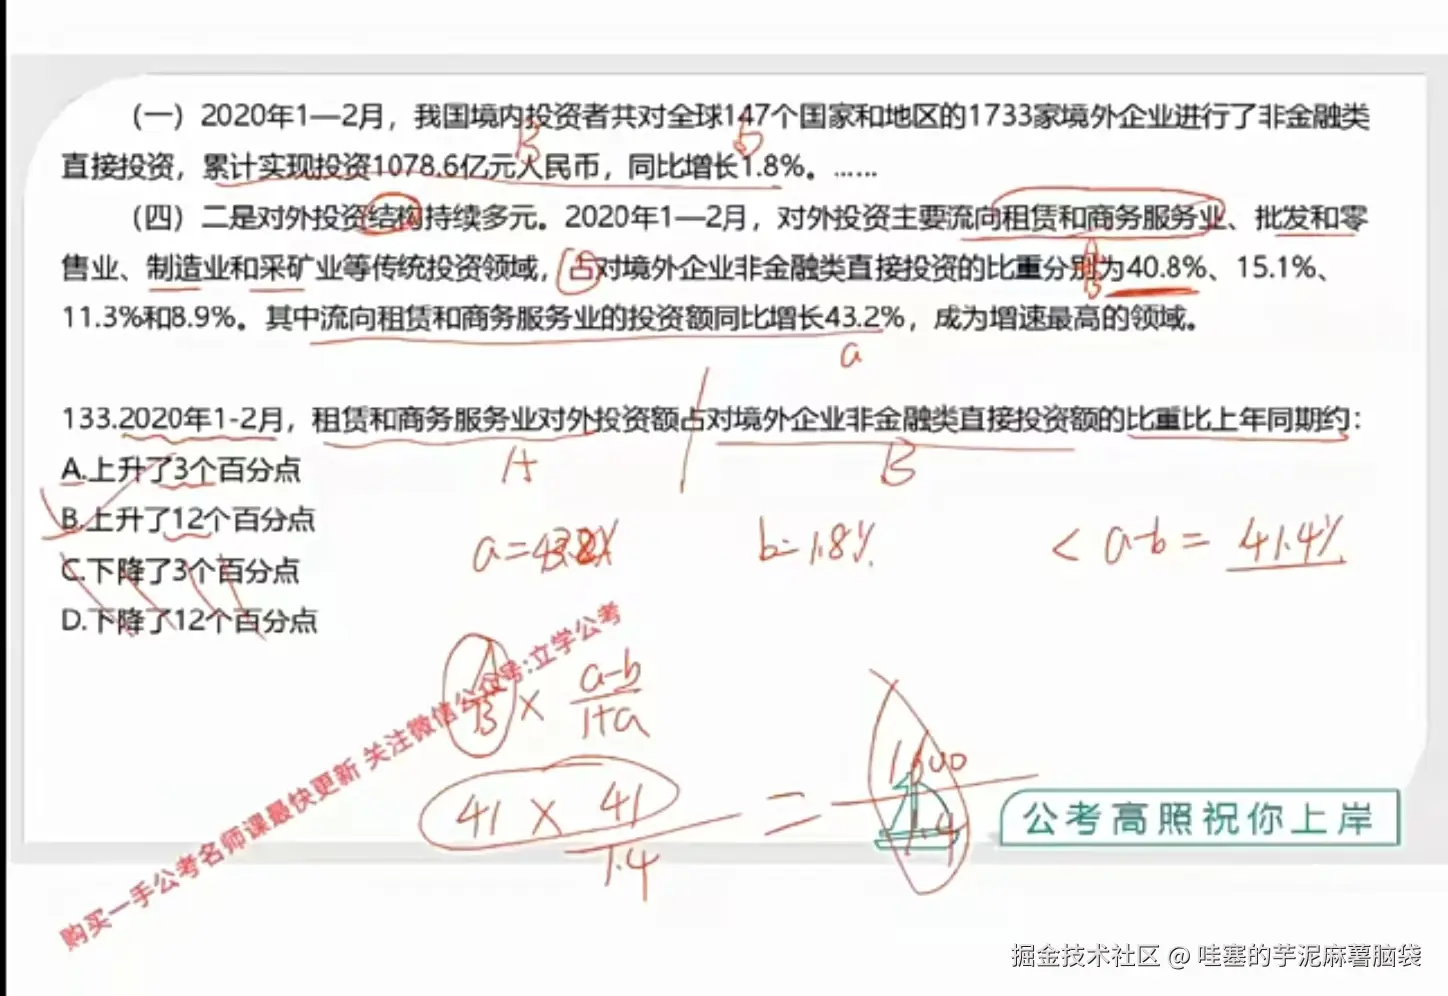 （一）2020年1—2月，我国境内投资者共对全球147个国家和地区的1733家境外企业进行了非金融类
直接投资，累计实现投资1078.6亿元人民币，同比增长1.8%。……
B
b
（四）二是对外投资结构持续多元。2020年1—2月，对外投资主要流向租赁和商务服务业、批发和零
售业、制造业和采矿业等传统投资领域，占对境外企业非金融类直接投资的比重分别为40.8%、15.1%、
A
B
11.3%和8.9%。其中流向租赁和商务服务业的投资额同比增长43.2%，成为增速最高的领域。
a
133.2020年1-2月，租赁和商务服务业对外投资额占对境外企业非金融类直接投资额的比重比上年同期约：
A.上升了3个百分点
A
B
B.上升了12个百分点
a=43.2%
b=1.8%
< a-b = 41.4%
C.下降了3个百分点
D.下降了12个百分点
A
B
×
a-b
1+a
41 × 41
1.4
=
1600
1.4
购买一手公考名师课最快更新 关注微信公众号:立学公考
公考高照祝你上岸
掘金技术社区 @ 哇塞的芋泥麻薯脑袋